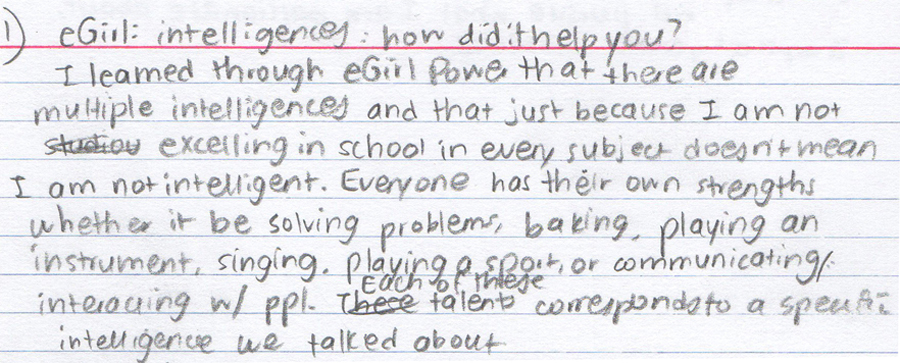 1) eGirl: intelligences: how did it help you?
I learned through eGirl Power that there are
multiple intelligences and that just because I am not
studiou excelling in school in every subject doesn't mean
I am not intelligent. Everyone has their own strengths
whether it be solving problems, baking, playing an
instrument, singing, playing a sport, or communicating/
Each of these
interacting w/ ppl. These talents corresponds to a specific
intelligence we talked about